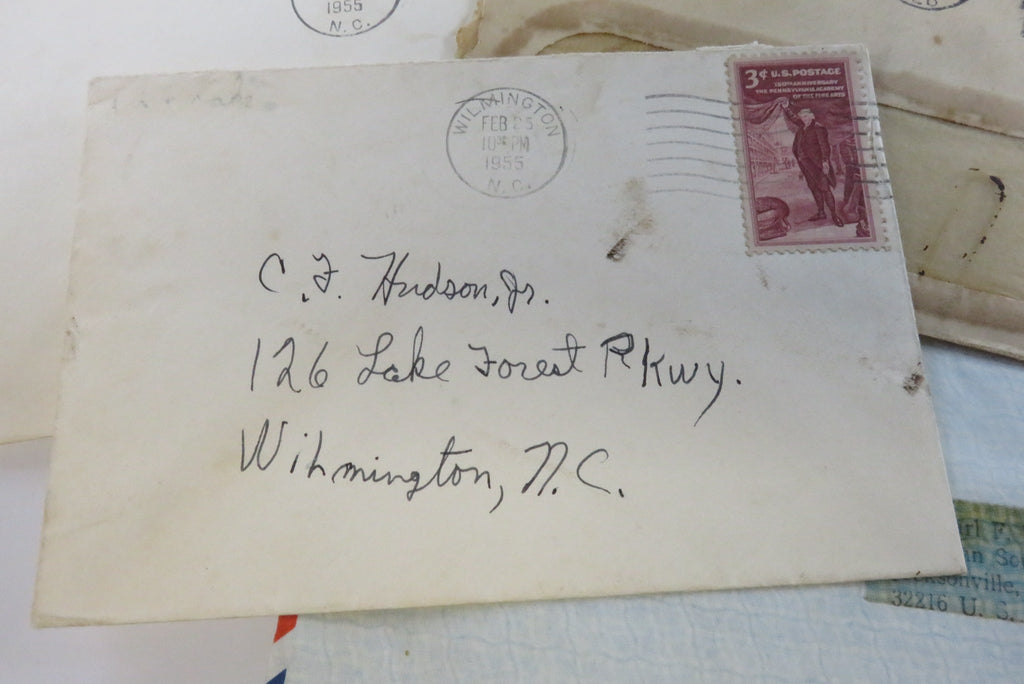 1955
N. C.
WILMINGTON
FEB 25
PM
1955
N. C.
3¢ U.S. POSTAGE
150TH ANNIVERSARY
THE PENNSYLVANIA ACADEMY
OF THE FINE ARTS
C. F. Hudson, Jr.
126 Lake Forest PKwy.
Wilmington, N. C.
32216 U. S.